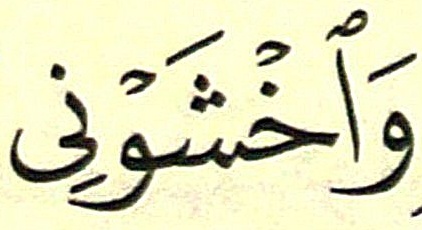 وَٱخْشَوْنِى